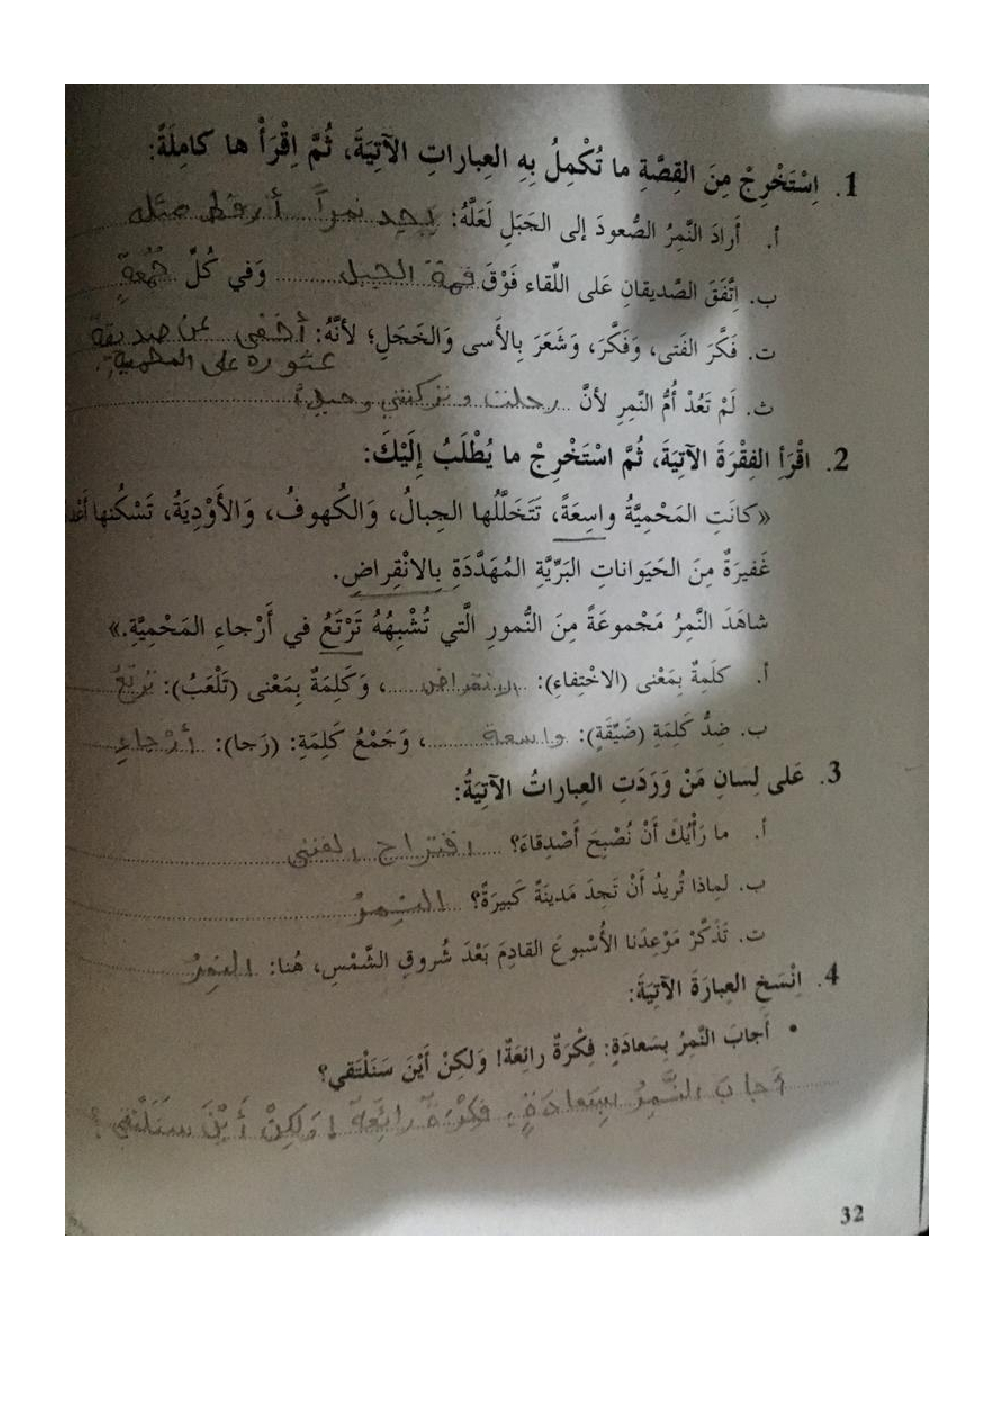 1. اِسْتَخْرِجْ مِنَ القِصَّةِ ما تُكْمِلُ بِهِ العِباراتِ الآتِيَةَ، ثُمَّ اِقْرَأْ ها كامِلَةً:
أ. أَرادَ النَّمِرُ الصُّعودَ إلى الجَبَلِ لَعَلَّهُ: يجد نمراً أرقط مثله
ب. اِتَّفَقَ الصَّديقانِ عَلى اللِّقاء فَوْقَ قمة الجبل وَفي كُلِّ جُمُعَةٍ
ت. فَكَّرَ الفَتى، وَفَكَّرَ، وَشَعَرَ بِالأَسى وَالخَجَلِ؛ لأنَّهُ: أخفى عن صديقه
عثوره على المحمية.
ث. لَمْ تَعُدْ أُمُّ النَّمِرِ لأنَّ رحلت و تركتني
2. اقْرَأِ الفِقْرَةَ الآتِيَةَ، ثُمَّ اسْتَخْرِجْ ما يُطْلَبُ إلَيْكَ:
«كانَتِ المَحْمِيَّةُ واسِعَةً، تَتَخَلَّلُها الجِبالُ، وَالكُهوفُ، وَالأَوْدِيَةُ، تَسْكُنها
غَفيرَةٌ مِنَ الحَيَواناتِ البَرِّيَّةِ المُهَدَّدَةِ بِالانْقِراضِ.
شاهَدَ النَّمِرُ مَجْموعَةً مِنَ النُّمورِ الَّتي تُشْبِهُهُ تَرْتَعُ في أَرْجاءِ المَحْمِيَّةِ.»
أ. كَلِمَةٌ بِمَعْنى (الاخْتِفاءِ): الانقراض، وَكَلِمَةٌ بِمَعْنى (تَلْعَبُ): تَرْتَعُ
ب. ضِدُّ كَلِمَةِ (ضَيِّقَةٍ): واسعة، وَجَمْعُ كَلِمَةِ: (رَجا): أرْجاءِ
3. عَلى لِسانِ مَنْ وَرَدَتِ العِباراتُ الآتِيَةُ:
أ. ما رَأْيُكَ أَنْ نُصْبِحَ أَصْدِقاءَ؟ اقتراح الفتى
ب. لِماذا تُريدُ أَنْ تَجِدَ مَدينَةً كَبيرَةً؟ النمِرُ
ت. تَذَكَّرْ مَوْعِدَنا الأُسْبوعَ القادِمَ بَعْدَ شُروقِ الشَّمْسِ، هُنا: النمِرُ
4. اِنْسَخِ العِبارَةَ الآتِيَةَ:
• أَجابَ النَّمِرُ بِسَعادَةٍ: فِكْرَةٌ رائِعَةٌ! وَلَكِنْ أَيْنَ سَنَلْتَقي؟
أَجابَ النَّمِرُ بِسَعادَةٍ: فِكْرَةٌ رائِعَةٌ! وَلَكِنْ أَيْنَ سَنَلْتَقي؟
32